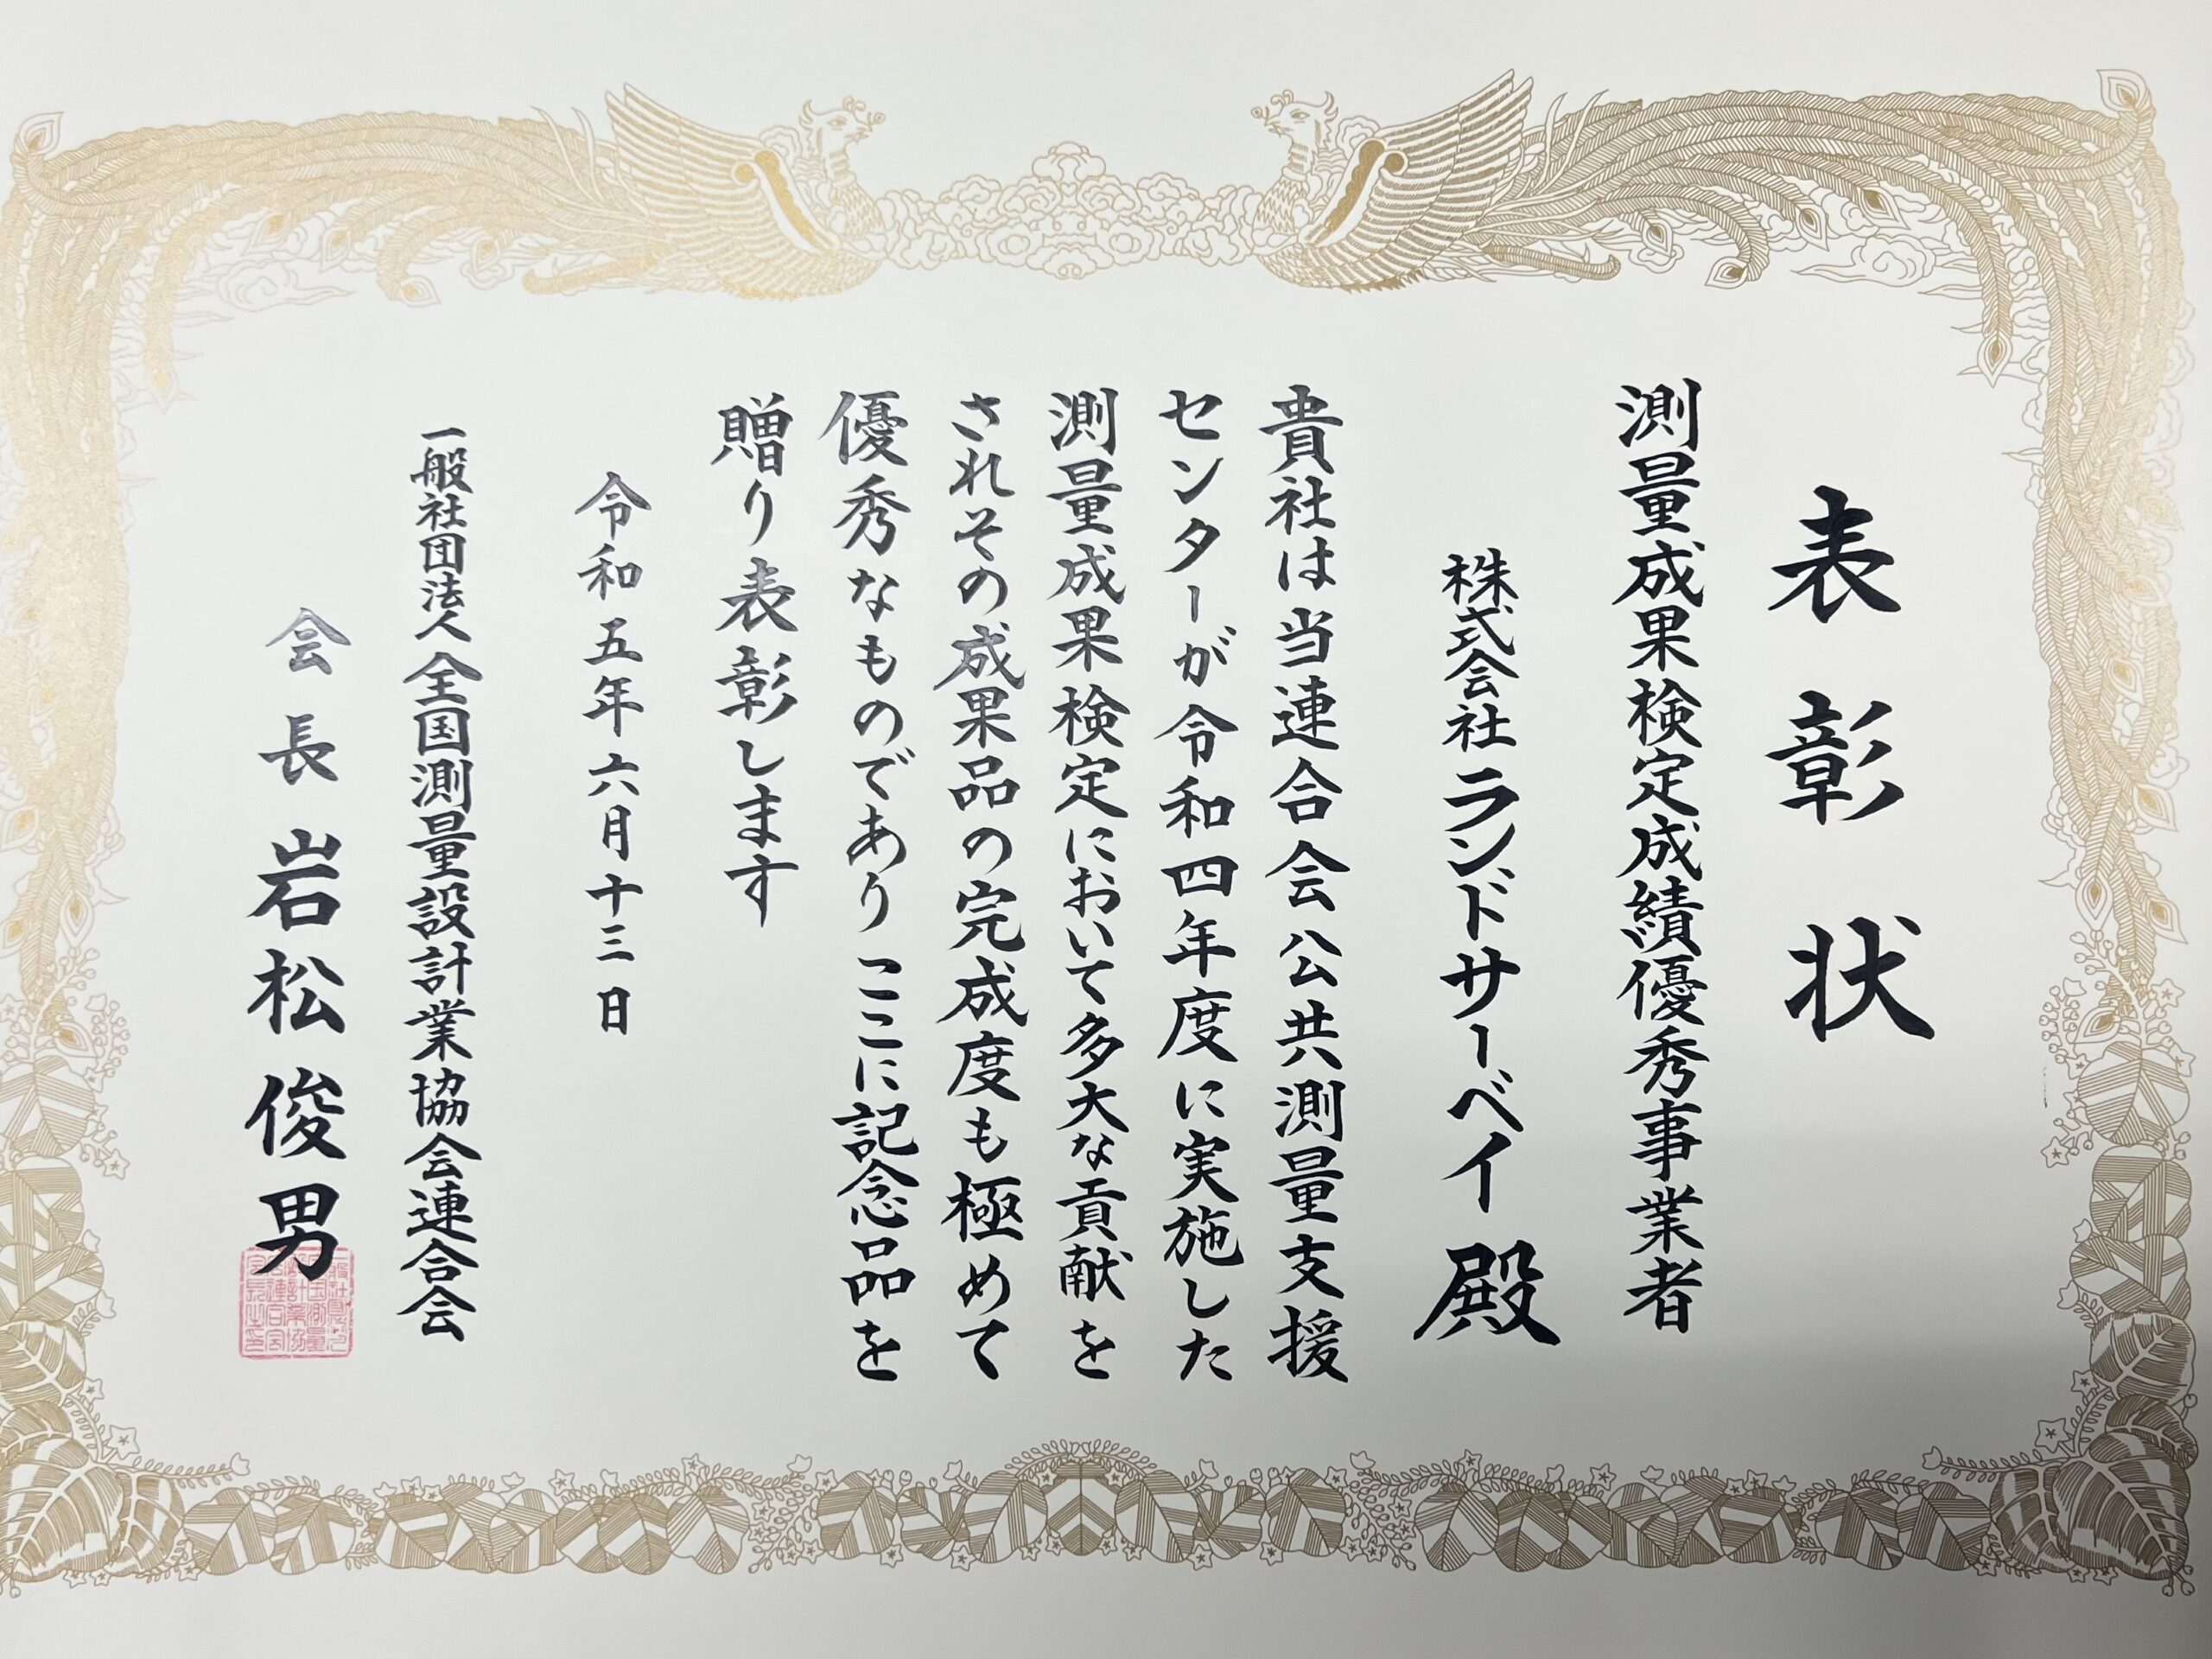 表彰状
測量成果検定成績優秀事業者
株式会社ランドサーベイ殿
貴社は当連合会公共測量支援
センターが令和四年度に実施した
測量成果検定において多大な貢献を
されその成果品の完成度も極めて
優秀なものでありここに記念品を
贈り表彰します
令和五年六月十三日
一般社団法人全国測量設計業協会連合会
会長岩松俊男